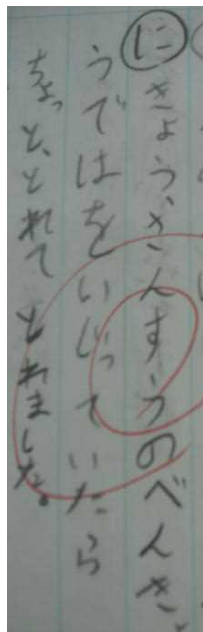 に きょう、さんすうのべんき、
うではをいじっていたら
ちょっと、とれて とれました。